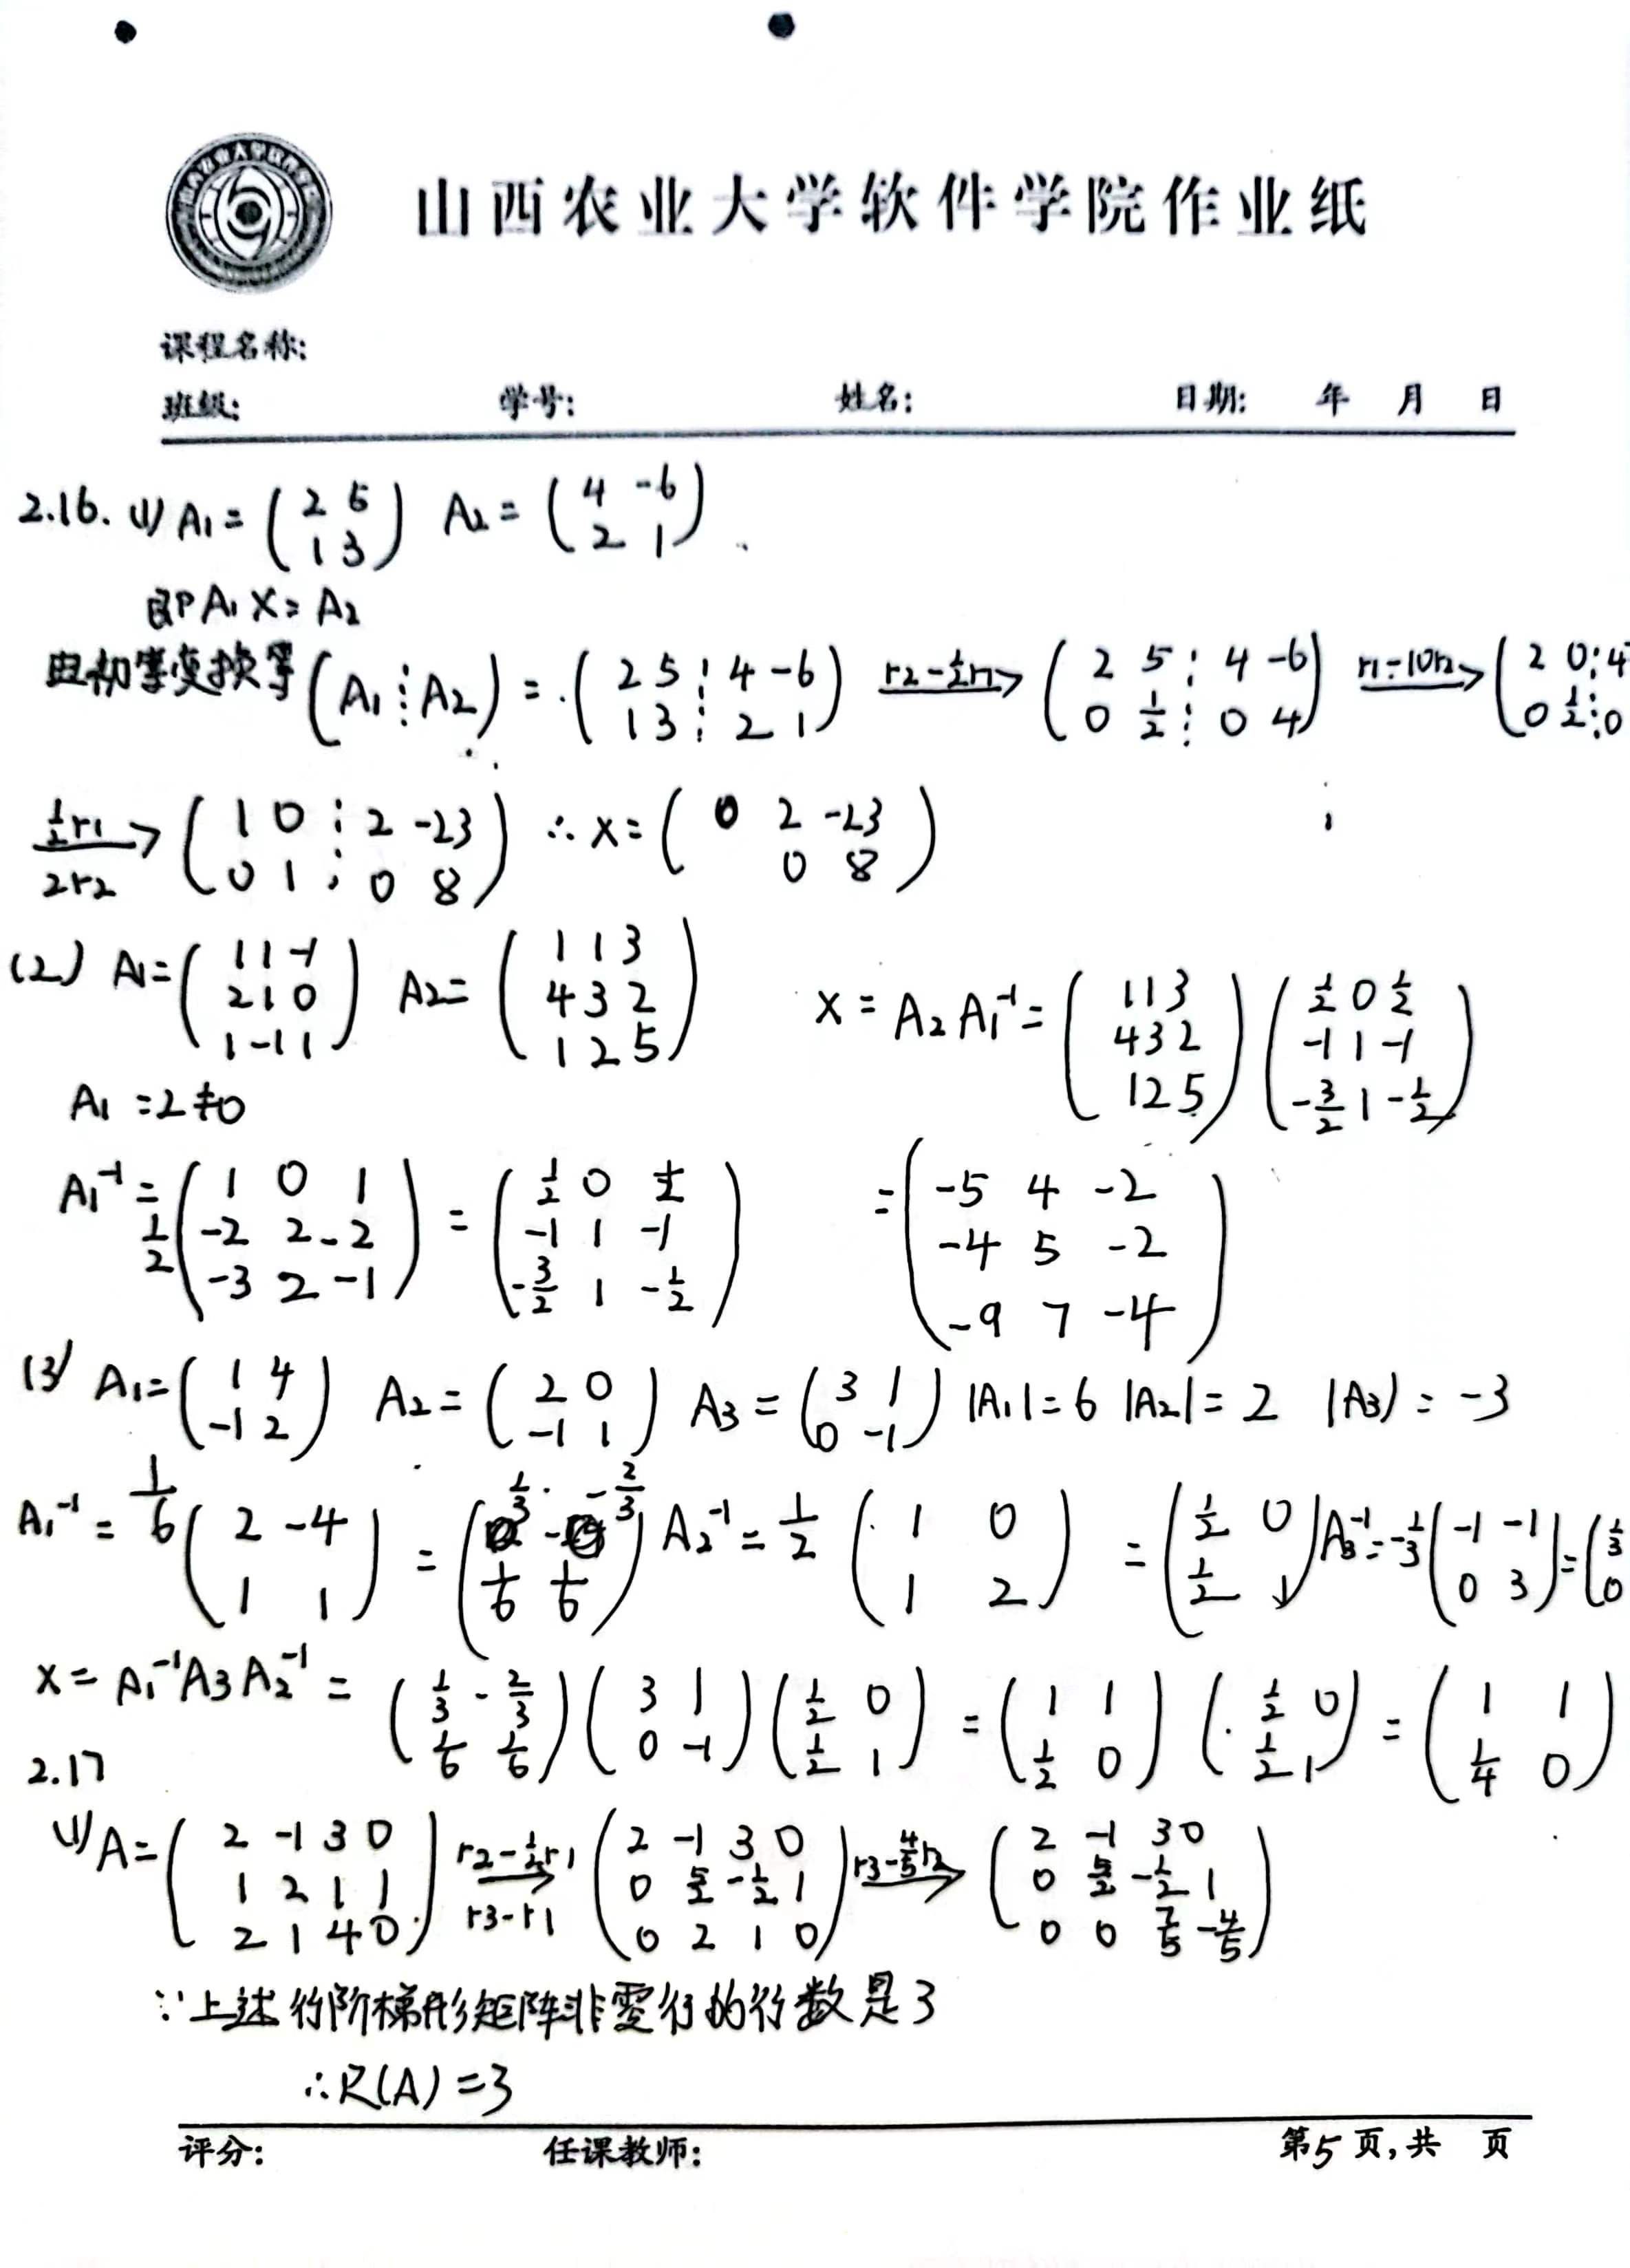 山西农业大学软件学院作业纸
课程名称:
班级: 学号: 姓名: 日期: 年 月 日
2.16. (1) A₁ = ( 2 5 ; 1 3 ) A₂ = ( 4 -6 ; 2 1 )
即 A₁X = A₂
由初等变换等 (A₁ ⋮ A₂) = ( 2 5 ⋮ 4 -6 ; 1 3 ⋮ 2 1 ) r2-½r1→ ( 2 5 ⋮ 4 -6 ; 0 ½ ⋮ 0 4 ) r1-10r2→ ( 2 0 ⋮ 4 ; 0 ½ ⋮ 0
½r1 2r2→ ( 1 0 ⋮ 2 -23 ; 0 1 ⋮ 0 8 ) ∴ X = ( 2 -23 ; 0 8 )
(2) A₁= ( 1 1 -1 ; 2 1 0 ; 1 -1 1 ) A₂= ( 1 1 3 ; 4 3 2 ; 1 2 5 )
A₁ = 2 ≠ 0
A₁⁻¹ = ½ ( 1 0 1 ; -2 2 -2 ; -3 2 -1 ) = ( ½ 0 ½ ; -1 1 -1 ; -3/2 1 -½ )
X = A₂A₁⁻¹ = ( 1 1 3 ; 4 3 2 ; 1 2 5 ) ( ½ 0 ½ ; -1 1 -1 ; -3/2 1 -½ )
= ( -5 4 -2 ; -4 5 -2 ; -9 7 -4 )
(3) A₁= ( 1 4 ; -1 2 ) A₂ = ( 2 0 ; -1 1 ) A₃ = ( 3 1 ; 0 -1 ) |A₁| = 6 |A₂| = 2 |A₃| = -3
A₁⁻¹ = 1/6 ( 2 -4 ; 1 1 ) = ( 1/3 -2/3 ; 1/6 1/6 ) A₂⁻¹ = ½ ( 1 0 ; 1 2 ) = ( ½ 0 ; ½ 1 ) A₃⁻¹ = -1/3 ( -1 -1 ; 0 3 ) = ( 1/3 ; 0
X = A₁⁻¹A₃A₂⁻¹ = ( 1/3 -2/3 ; 1/6 1/6 ) ( 3 1 ; 0 -1 ) ( ½ 0 ; ½ 1 ) = ( 1 1 ; ½ 0 ) ( ½ 0 ; ½ 1 ) = ( 1 1 ; ¼ 0 )
2.17
(1) A = ( 2 -1 3 0 ; 1 2 1 1 ; 2 1 4 0 ) r2-½r1 r3-r1→ ( 2 -1 3 0 ; 0 5/2 -½ 1 ; 0 2 1 0 ) r3-4/5r2→ ( 2 -1 3 0 ; 0 5/2 -½ 1 ; 0 0 7/5 -4/5 )
∵上述行阶梯形矩阵非零行的行数是3
∴R(A) = 3
评分: 任课教师: 第5页,共 页